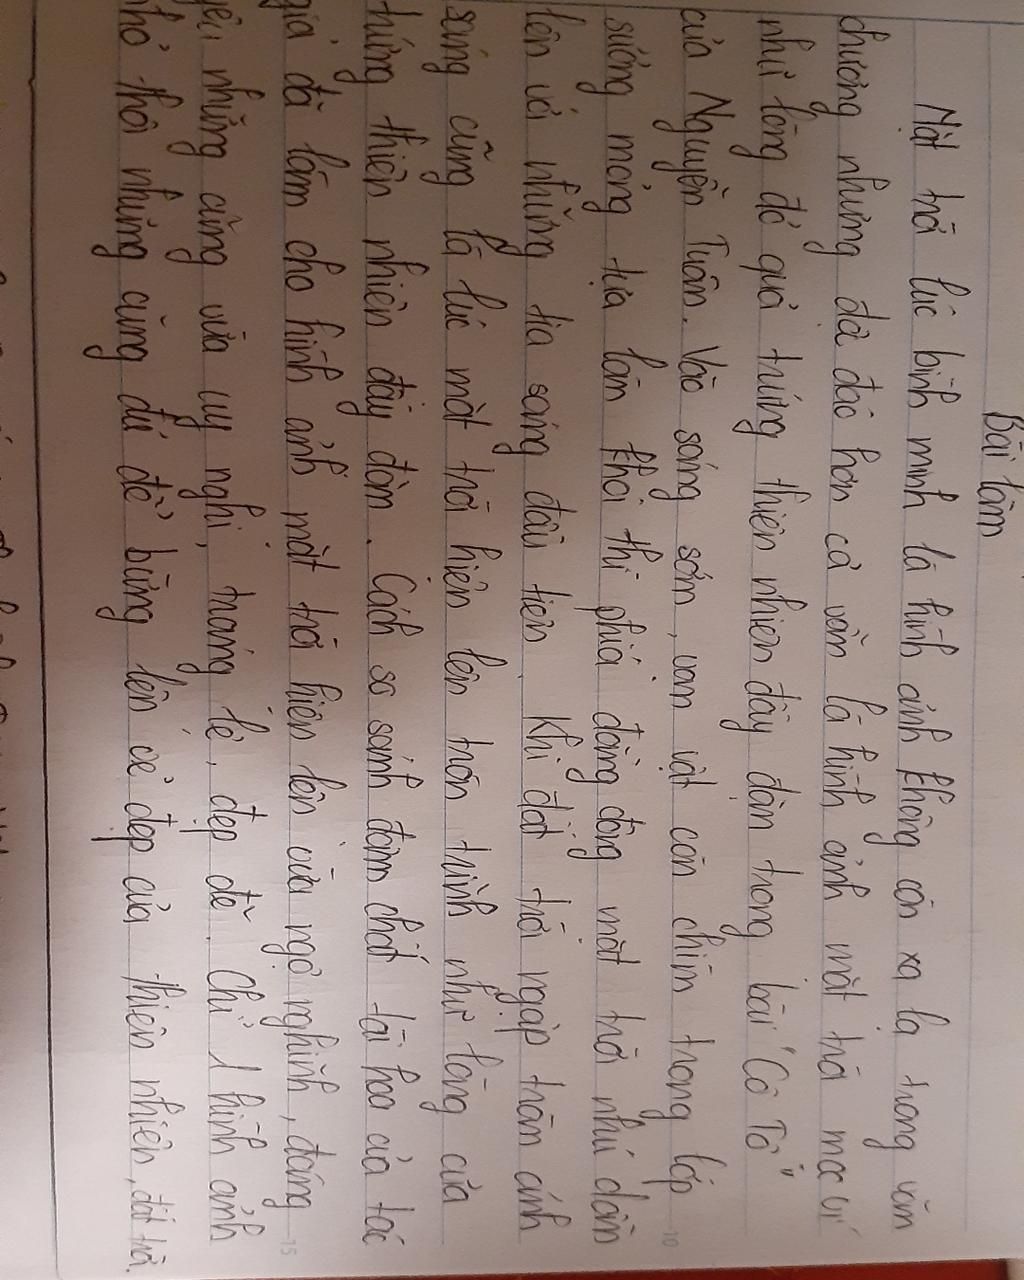 Bài làm
Mặt trời lúc bình minh là hình ảnh không còn xa lạ trong văn
chương nhưng đặc hơn cả vẫn là hình ảnh mặt trời mọc ví
như lòng đỏ quả trứng thiên nhiên đầy đặn trong bài "Cô Tô"
của Nguyễn Tuân. Vào sáng sớm, vạn vật còn chìm trong lớp
sương mỏng tựa làn khói thì phía đằng đông mặt trời nhú dần
lên với những tia sáng đầu tiên. Khi đất trời ngập tràn ánh
sáng cũng là lúc mặt trời hiện lên tròn trĩnh như lòng của
trứng thiên nhiên đầy đặn. Cách so sánh đậm chất tài hoa của tác
giả đã làm cho hình ảnh mặt trời hiện lên vừa ngộ nghĩnh, đáng
yêu nhưng cũng vừa uy nghi, tráng lệ, đẹp đẽ. Chỉ 1 hình ảnh
nhỏ thôi nhưng cũng đủ để bừng lên vẻ đẹp của thiên nhiên, đất trời.